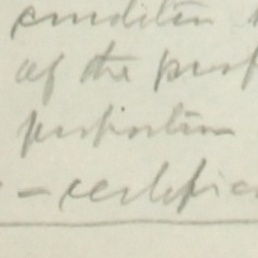 condition
of the prop
proportion
- certific